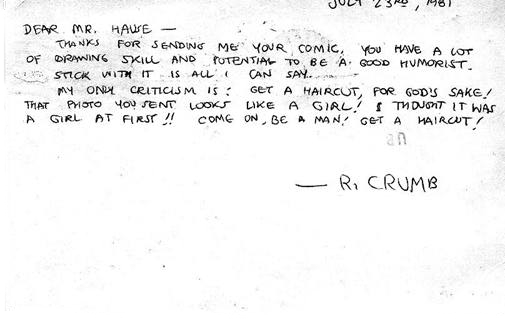 JULY 23RD, 1981
DEAR MR. HAWE —
THANKS FOR SENDING ME YOUR COMIC. YOU HAVE A LOT
OF DRAWING SKILL AND POTENTIAL TO BE A GOOD HUMORIST.
STICK WITH IT IS ALL I CAN SAY.
MY ONLY CRITICISM IS: GET A HAIRCUT, FOR GOD'S SAKE!
THAT PHOTO YOU SENT LOOKS LIKE A GIRL! I THOUGHT IT WAS
A GIRL AT FIRST!! COME ON, BE A MAN! GET A HAIRCUT!
— R. CRUMB